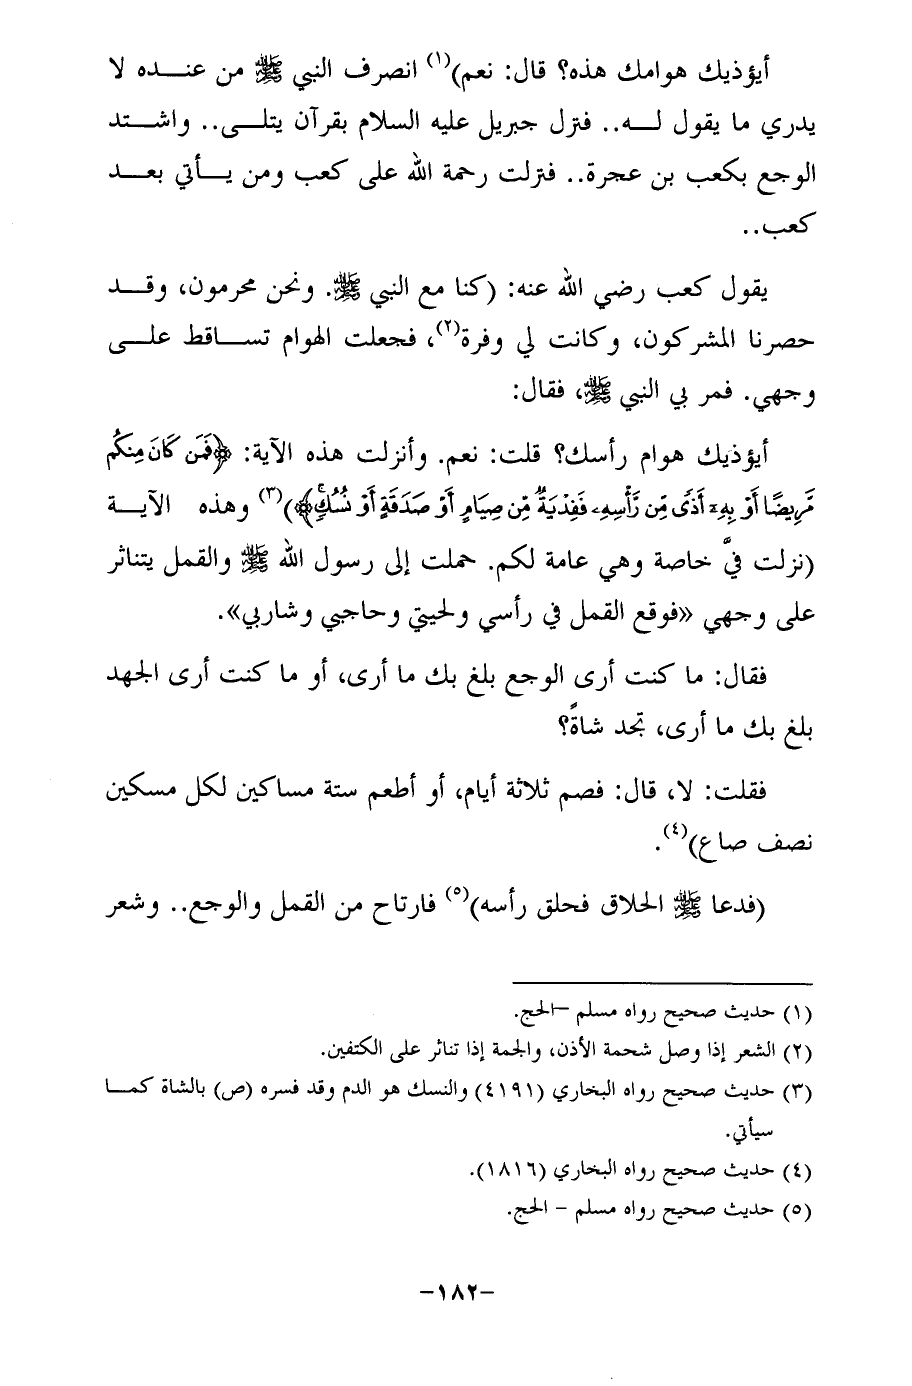 أيؤذيك هوامك هذه؟ قال: نعم)(١) انصرف النبي ﷺ من عنده لا
يدري ما يقول له.. فنزل جبريل عليه السلام بقرآن يتلى.. واشتد
الوجع بكعب بن عجرة.. فنزلت رحمة الله على كعب ومن يأتي بعد
كعب..
يقول كعب رضي الله عنه: (كنا مع النبي ﷺ. ونحن محرمون، وقد
حصرنا المشركون، وكانت لي وفرة(٢)، فجعلت الهوام تساقط على
وجهي. فمر بي النبي ﷺ، فقال:
أيؤذيك هوام رأسك؟ قلت: نعم. وأنزلت هذه الآية: ﴿فَمَن كَانَ مِنكُم
مَّرِيضًا أَوْ بِهِۦٓ أَذًى مِّن رَّأْسِهِۦ فَفِدْيَةٌ مِّن صِيَامٍ أَوْ صَدَقَةٍ أَوْ نُسُكٍۚ﴾)(٣) وهذه الآية
(نزلت فيَّ خاصة وهي عامة لكم. حملت إلى رسول الله ﷺ والقمل يتناثر
على وجهي «فوقع القمل في رأسي ولحيتي وحاجبي وشاربي».
فقال: ما كنت أرى الوجع بلغ بك ما أرى، أو ما كنت أرى الجهد
بلغ بك ما أرى، تجد شاةً؟
فقلت: لا، قال: فصم ثلاثة أيام، أو أطعم ستة مساكين لكل مسكين
نصف صاع)(٤).
(فدعا ﷺ الحلاق فحلق رأسه)(٥) فارتاح من القمل والوجع.. وشعر
(١) حديث صحيح رواه مسلم -الحج.
(٢) الشعر إذا وصل شحمة الأذن، والجمة إذا تناثر على الكتفين.
(٣) حديث صحيح رواه البخاري (٤١٩١) والنسك هو الدم وقد فسره (ص) بالشاة كما
سيأتي.
(٤) حديث صحيح رواه البخاري (١٨١٦).
(٥) حديث صحيح رواه مسلم - الحج.
-١٨٢-